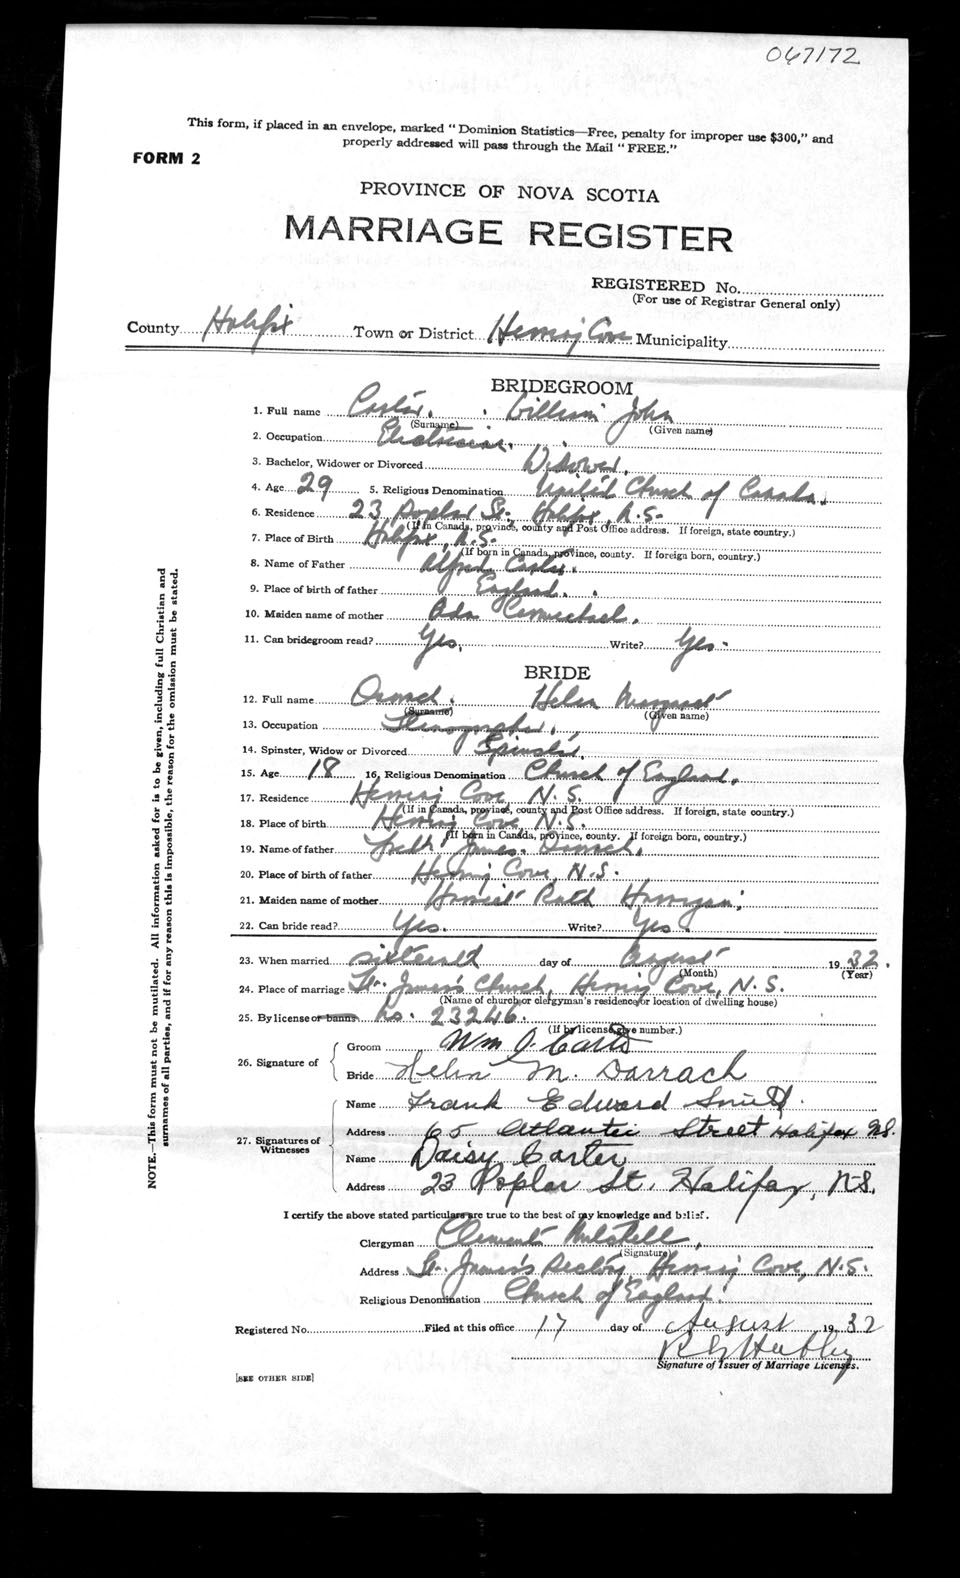 067172
This form, if placed in an envelope, marked "Dominion Statistics—Free, penalty for improper use $300," and
properly addressed will pass through the Mail "FREE."
FORM 2
PROVINCE OF NOVA SCOTIA
MARRIAGE REGISTER
REGISTERED No.
(For use of Registrar General only)
County Halifax Town or District Herring Cove Municipality
BRIDEGROOM
1. Full name Carter. William John
(Surname) (Given name)
2. Occupation Electrician.
3. Bachelor, Widower or Divorced Widower.
4. Age 29 5. Religious Denomination United Church of Canada.
6. Residence 23 Poplar St., Halifax, N.S.
(If in Canada, province, county and Post Office address. If foreign, state country.)
7. Place of Birth Halifax, N.S.
(If born in Canada, province, county. If foreign born, country.)
8. Name of Father Alfred Carter.
9. Place of birth of father England.
10. Maiden name of mother Ada
11. Can bridegroom read? Yes. Write? Yes.
BRIDE
12. Full name Darrach. Helen Margaret
(Surname) (Given name)
13. Occupation Stenographer.
14. Spinster, Widow or Divorced Spinster.
15. Age 18 16. Religious Denomination Church of England.
17. Residence Herring Cove N.S.
(If in Canada, province, county and Post Office address. If foreign, state country.)
18. Place of birth Herring Cove N.S.
(If born in Canada, province, county. If foreign born, country.)
19. Name of father James Darrach.
20. Place of birth of father Herring Cove, N.S.
21. Maiden name of mother Ruth
22. Can bride read? Yes. Write? Yes.
23. When married sixteenth day of August 1932.
(Month) (Year)
24. Place of marriage St. James's Church, Herring Cove, N.S.
(Name of church or clergyman's residence or location of dwelling house)
25. By license or banns No. 23246.
(If by license, give number.)
26. Signature of
Groom Wm J. Carter
Bride Helen M. Darrach
27. Signatures of Witnesses
Name Frank Edward Smith.
Address 65 Atlantic Street Halifax N.S.
Name Daisy Carter
Address 23 Poplar St. Halifax, N.S.
I certify the above stated particulars are true to the best of my knowledge and belief.
Clergyman Clement
(Signature)
Address St. James's Rectory Herring Cove, N.S.
Religious Denomination Church of England.
Registered No. Filed at this office 17 day of August 1932
Signature of Issuer of Marriage Licenses.
[SEE OTHER SIDE]
NOTE.—This form must not be mutilated. All information asked for is to be given, including full Christian and
surnames of all parties, and if for any reason this is impossible, the reason for the omission must be stated.